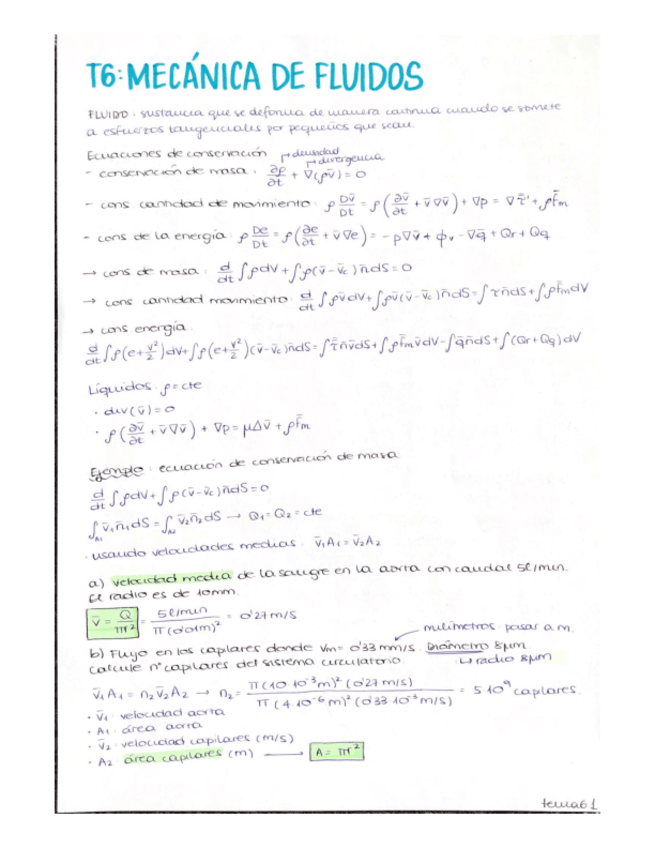 T6: MECÁNICA DE FLUIDOS
FLUIDO: sustancia que se deforma de manera continua cuando se somete
a esfuerzos tangenciales por pequeños que sean.
Ecuaciones de conservación → densidad
→ divergencia
- conservación de masa: ∂ρ/∂t + ∇(ρv̄) = 0
- cons. cantidad de movimiento: ρ Dv̄/Dt = ρ(∂v̄/∂t + v̄∇v̄) + ∇p = ∇τ̄' + ρf̄m
- cons de la energía: ρ De/Dt = ρ(∂e/∂t + v̄∇e) = -p∇v̄ + ϕv - ∇q̄ + Qr + Qq
→ cons de masa: d/dt ∫ρdV + ∫ρ(v̄ - v̄c)n̄dS = 0
→ cons cantidad movimiento: d/dt ∫ρv̄dV + ∫ρv̄(v̄ - v̄c)n̄dS = ∫τn̄dS + ∫ρf̄mdV
→ cons energía:
d/dt ∫ρ(e + v²/2)dV + ∫ρ(e + v²/2)(v̄ - v̄c)n̄dS = ∫τ̄n̄v̄dS + ∫ρf̄mv̄dV - ∫q̄n̄dS + ∫(Qr + Qq)dV
Líquidos: ρ = cte
· div(v̄) = 0
· ρ(∂v̄/∂t + v̄∇v̄) + ∇p = μΔv̄ + ρf̄m
Ejemplo: ecuación de conservación de masa
d/dt ∫ρdV + ∫ρ(v̄ - v̄c)n̄dS = 0
∫A1 v̄1n̄1dS = ∫A2 v̄2n̄2dS → Q1 = Q2 = cte
· usando velocidades medias: v̄1A1 = v̄2A2
a) velocidad media de la sangre en la aorta con caudal 5l/min.
El radio es de 10mm.
v̄ = Q/πr² = 5l/min / π(0'01m)² = 0'27 m/s
milímetros: pasar a m.
b) Flujo en los capilares donde vm = 0'33 mm/s. Diámetro 8μm
calcule nº capilares del sistema circulatorio. ↳ radio 8μm
v̄1A1 = n2v̄2A2 → n2 = π(10·10⁻³m)²(0'27m/s) / π(4·10⁻⁶m)²(0'33·10⁻³m/s) = 5·10⁹ capilares.
· v̄1: velocidad aorta
· A1: área aorta
· v̄2: velocidad capilares (m/s)
· A2: área capilares (m) → A = πr²
tema6 1